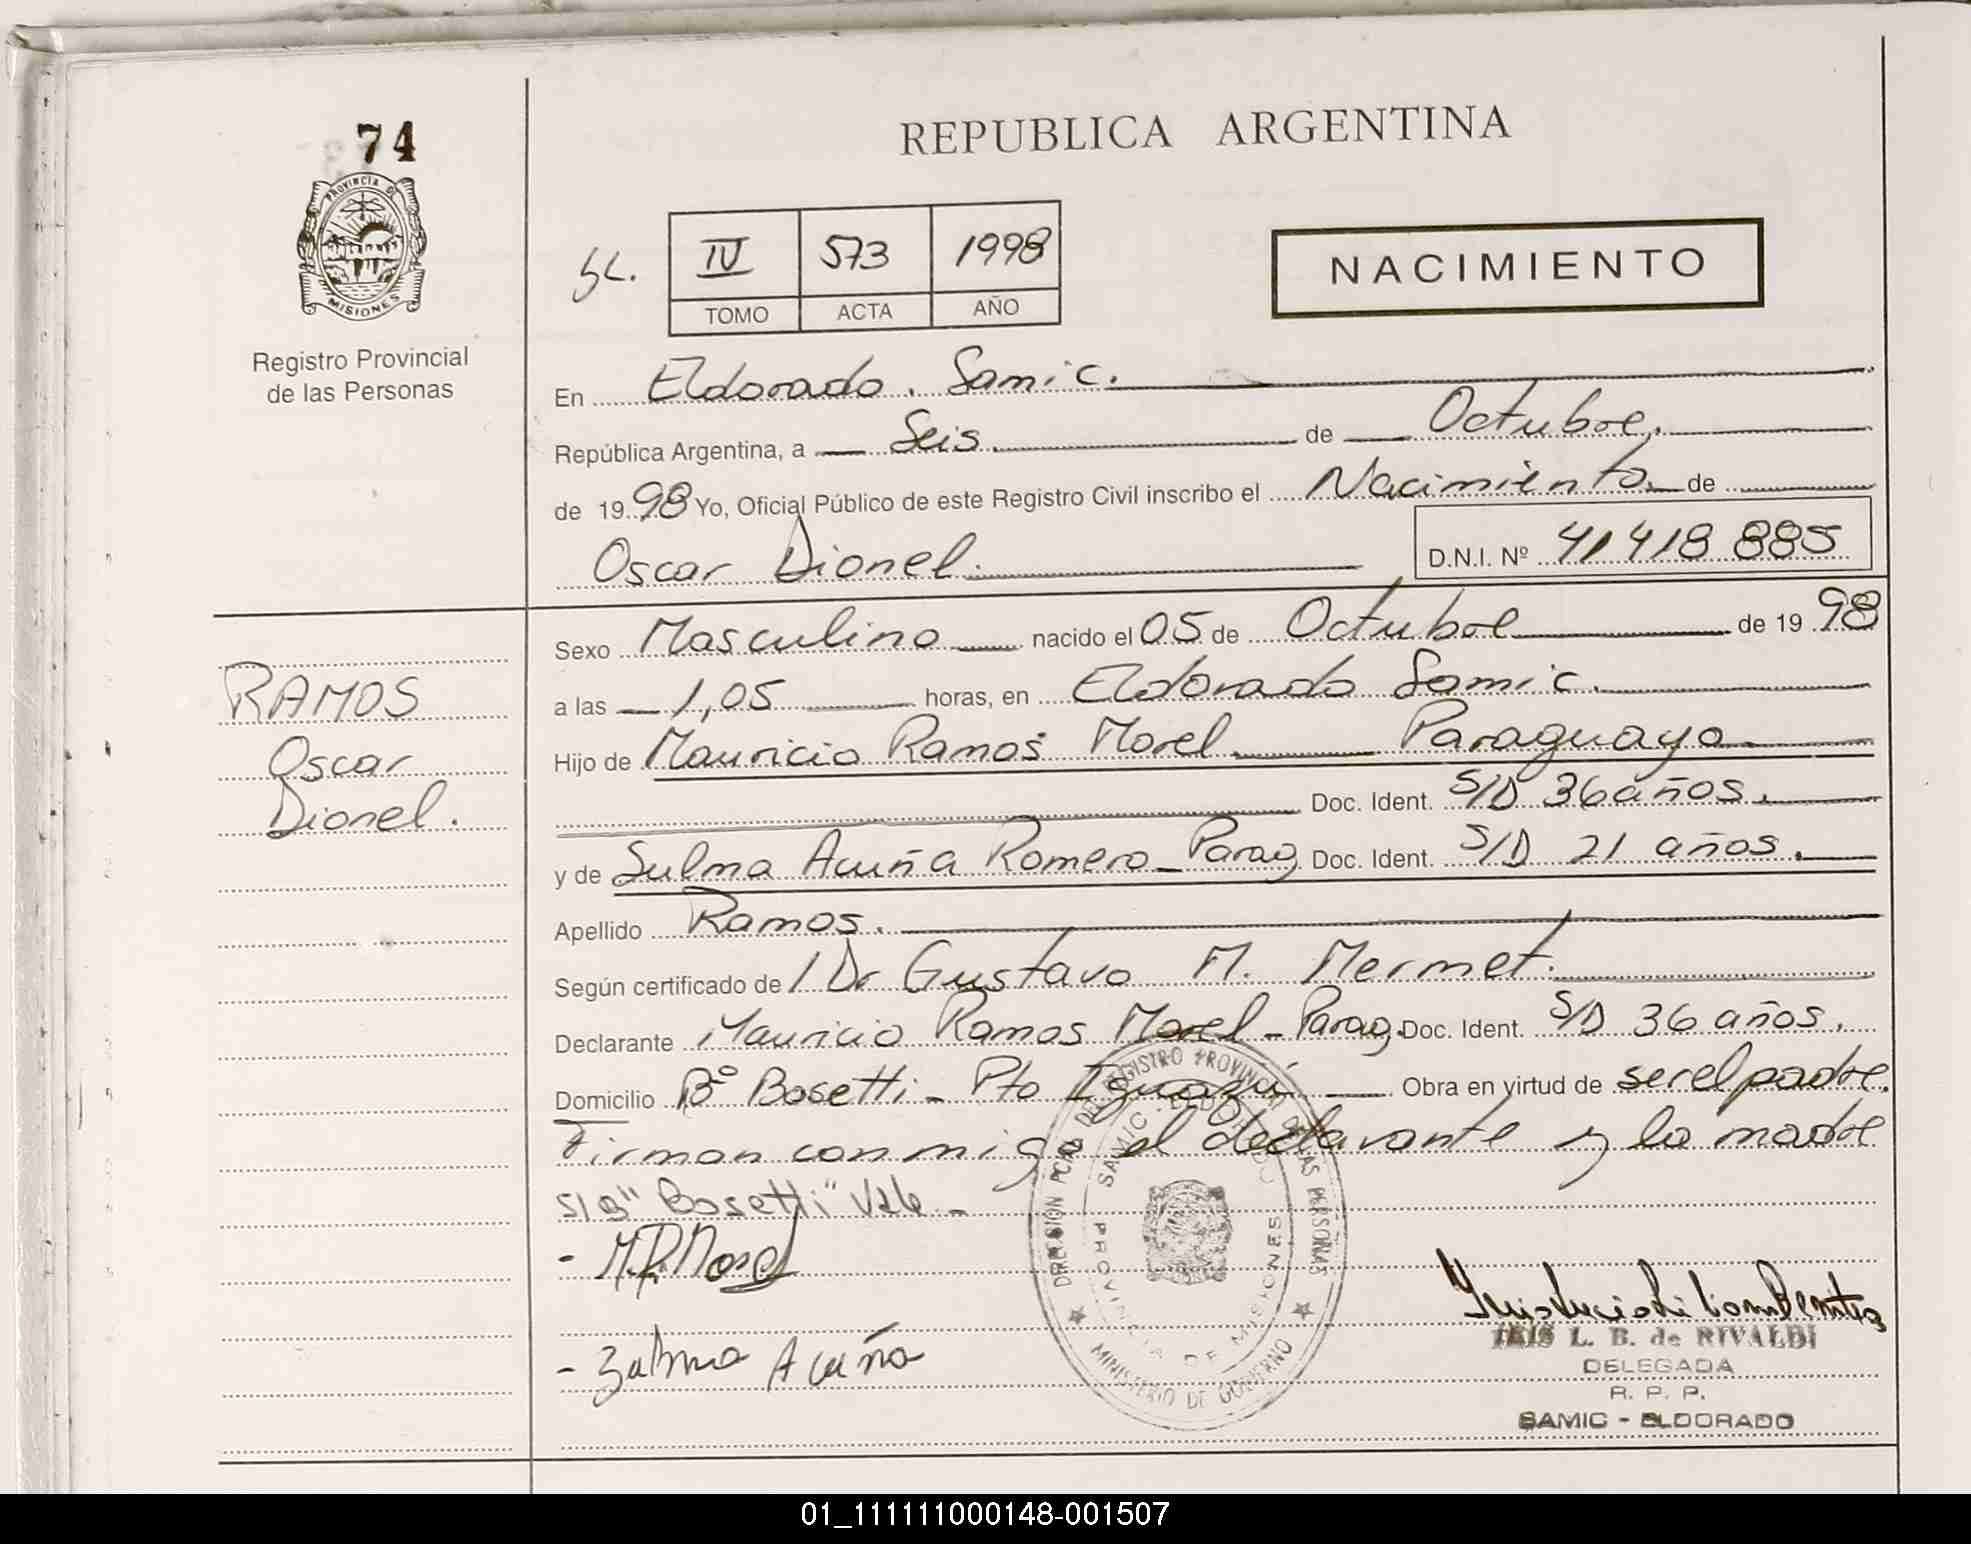 74
PROVINCIA DE
MISIONES
Registro Provincial
de las Personas
REPUBLICA ARGENTINA
IV 573 1998
TOMO ACTA AÑO
NACIMIENTO
En Eldorado. Samic.
República Argentina, a Seis de Octubre.
de 1998 Yo, Oficial Público de este Registro Civil inscribo el Nacimiento de
Oscar Dionel. D.N.I. Nº 41418 885
RAMOS
Oscar
Dionel.
Sexo Masculino nacido el 05 de Octubre de 1998
a las 1,05 horas, en Eldorado Samic.
Hijo de Mauricio Ramos Morel Paraguayo
Doc. Ident. S/D 36 años.
y de Sulma Acuña Romero - Parag Doc. Ident. S/D 21 años.
Apellido Ramos.
Según certificado de Dr Gustavo M. Mermet.
Declarante Mauricio Ramos Morel - Parag. Doc. Ident. S/D 36 años.
Domicilio Bº Bosetti - Pto Iguazú Obra en virtud de ser el padre.
Firman conmigo el declarante y la madre
"Bosetti" Vale -
- M.R. Morel
- Zulma Acuña
DIRECCION PCIAL DE REGISTRO PROVINCIAL DE LAS PERSONAS
SAMIC - ELDORADO
PROVINCIA DE MISIONES
MINISTERIO DE GOBIERNO
IRIS L. B. de RIVALDI
DELEGADA
R. P. P.
SAMIC - ELDORADO
01_111111000148-001507